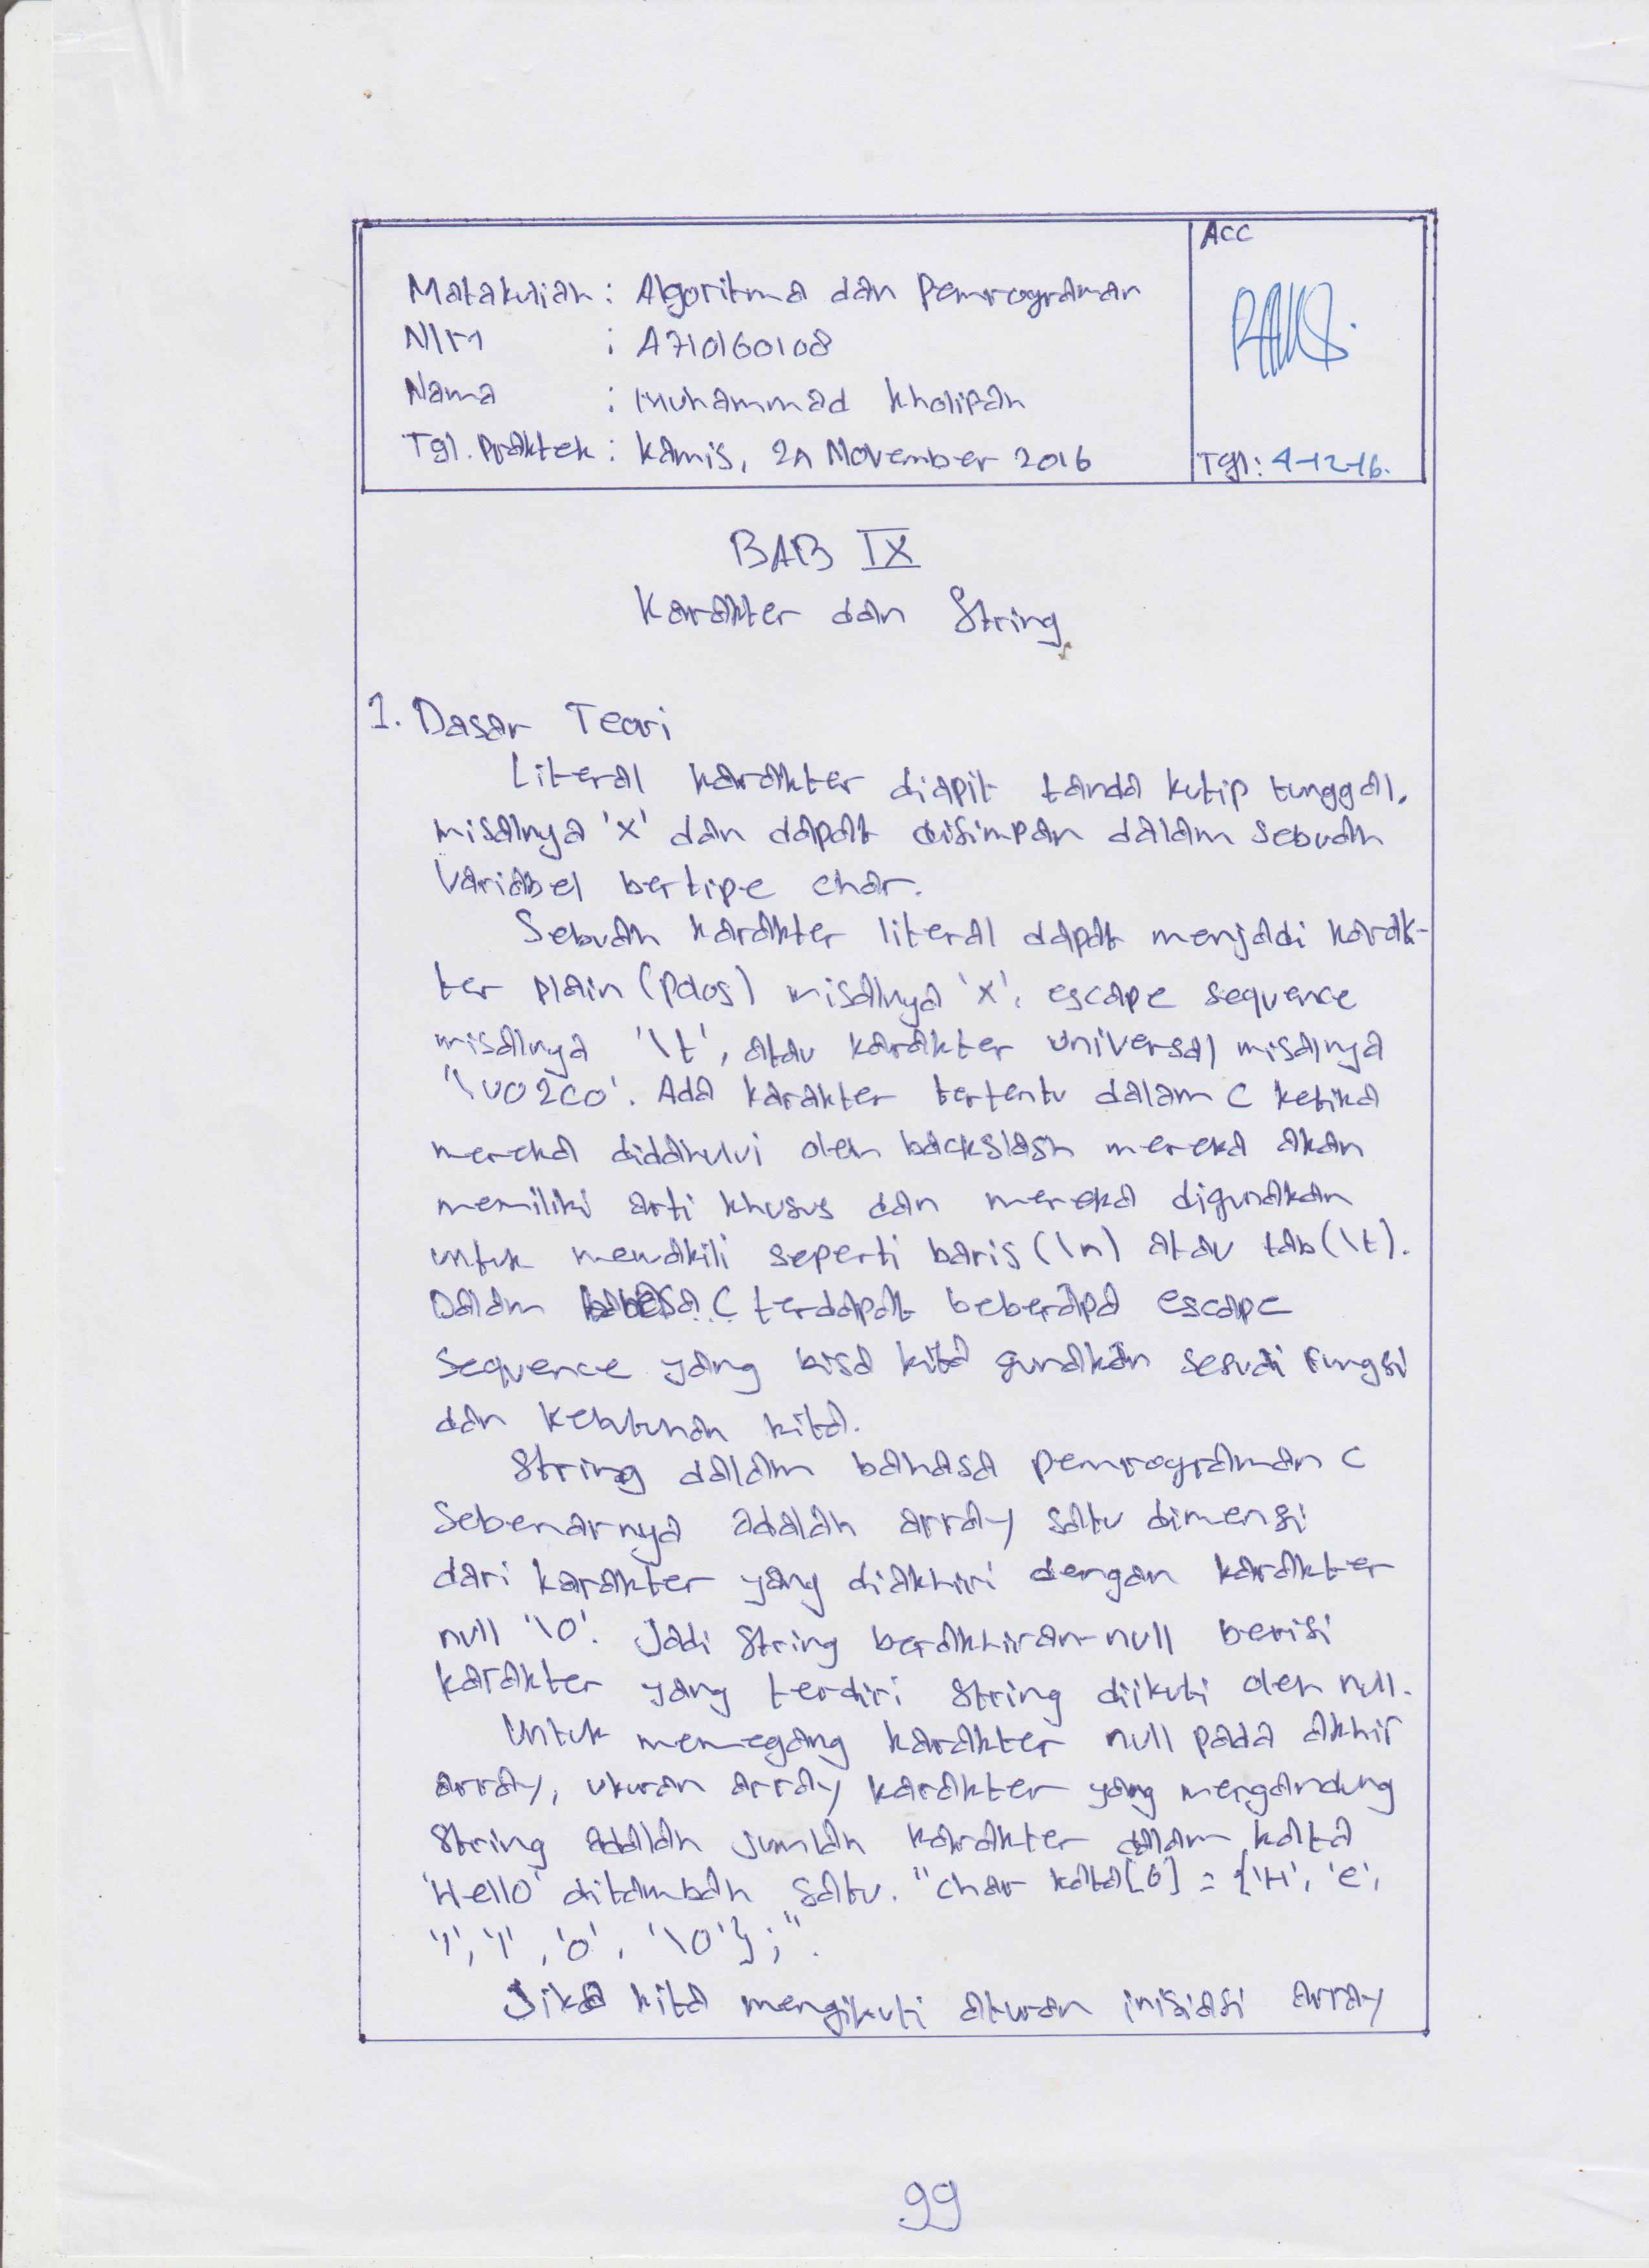 ACC
Matakuliah : Algoritma dan Pemrograman
NIM : A710160108
Nama : Muhammad Kholifah
Tgl. Praktek : Kamis, 24 November 2016
Tgl : 4-12-16.
BAB IX
Karakter dan String
1. Dasar Teori
Literal karakter diapit tanda kutip tunggal,
misalnya 'x' dan dapat disimpan dalam sebuah
Variabel bertipe char.
Sebuah karakter literal dapat menjadi karak-
ter plain (polos) misalnya 'x', escape sequence
misalnya '\t', atau karakter universal misalnya
'\u02C0'. Ada karakter tertentu dalam C ketika
mereka didahului oleh backslash mereka akan
memiliki arti khusus dan mereka digunakan
untuk mewakili seperti baris (\n) atau tab (\t).
Dalam bahasa C terdapat beberapa escape
sequence yang bisa kita gunakan sesuai fungsi
dan kebutuhan kita.
String dalam bahasa pemrograman C
Sebenarnya adalah array satu dimensi
dari karakter yang diakhiri dengan karakter
null '\0'. Jadi String berakhiran-null berisi
karakter yang terdiri string diikuti oleh null.
Untuk memegang karakter null pada akhir
array, ukuran array karakter yang mengandung
String adalah jumlah karakter dalam kata
'Hello' ditambah satu. "char kata[6] = {'H', 'e',
'l', 'l', 'o', '\0'};".
Jika kita mengikuti aturan inisiasi array
99